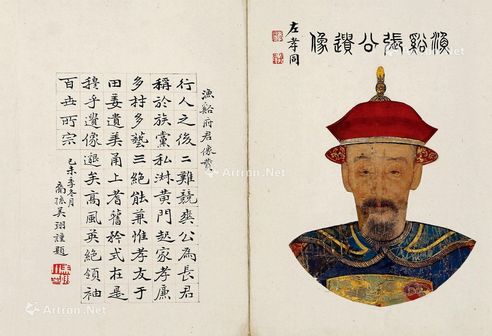 漁谿張公遺像
左孝同
漁谿府君像贊
行人之後二難競爽公為長君
稱於族黨私淑黃門起家孝廉
多材多藝三絕能兼惟孝友于
田姜遺美甬上耆舊矜式在是
穆乎遺像邈矣高風英絕領袖
百世所宗
己未季冬月
裔孫美翊謹題
Artron.Net